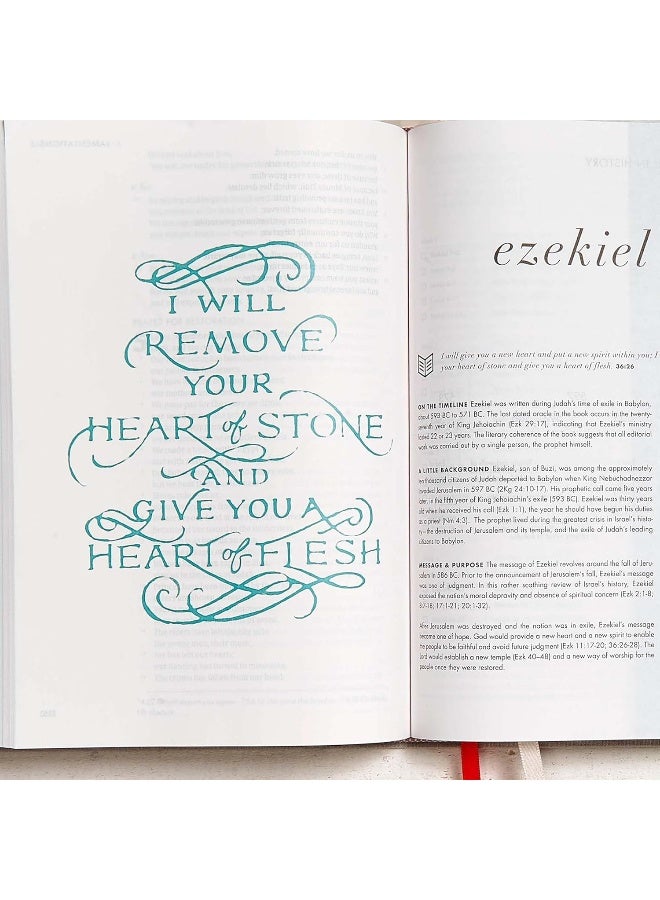 I WILL
REMOVE
YOUR
HEART of STONE
AND
GIVE YOU A
HEART of FLESH
ezekiel
I will give you a new heart and put a new spirit within you; I
your heart of stone and give you a heart of flesh. 36:26
ON THE TIMELINE Ezekiel was written during Judah's time of exile in Babylon,
about 593 BC to 571 BC. The last dated oracle in the book occurs in the twenty-
seventh year of King Jehoiachin (Ezk 29:17), indicating that Ezekiel's ministry
lasted 22 or 23 years. The literary coherence of the book suggests that all editorial
work was carried out by a single person, the prophet himself.
A LITTLE BACKGROUND Ezekiel, son of Buzi, was among the approximately
ten thousand citizens of Judah deported to Babylon when King Nebuchadnezzar
invaded Jerusalem in 597 BC (2Kg 24:10-17). His prophetic call came five years
later, in the fifth year of King Jehoiachin's exile (593 BC). Ezekiel was thirty years
old when he received his call (Ezk 1:1), the year he should have begun his duties
as a priest (Nm 4:3). The prophet lived during the greatest crisis in Israel's histo-
ry—the destruction of Jerusalem and its temple, and the exile of Judah's leading
citizens to Babylon.
MESSAGE & PURPOSE The message of Ezekiel revolves around the fall of Jeru-
salem in 586 BC. Prior to the announcement of Jerusalem's fall, Ezekiel's message
was one of judgment. In this rather scathing review of Israel's history, Ezekiel
exposed the nation's moral depravity and absence of spiritual concern (Ezk 2:1-8;
8:7-18; 17:1-21; 20:1-32).
After Jerusalem was destroyed and the nation was in exile, Ezekiel's message
became one of hope. God would provide a new heart and a new spirit to enable
the people to be faithful and avoid future judgment (Ezk 11:17-20; 36:26-28). The
Lord would establish a new temple (Ezk 40–48) and a new way of worship for the
people once they were restored.